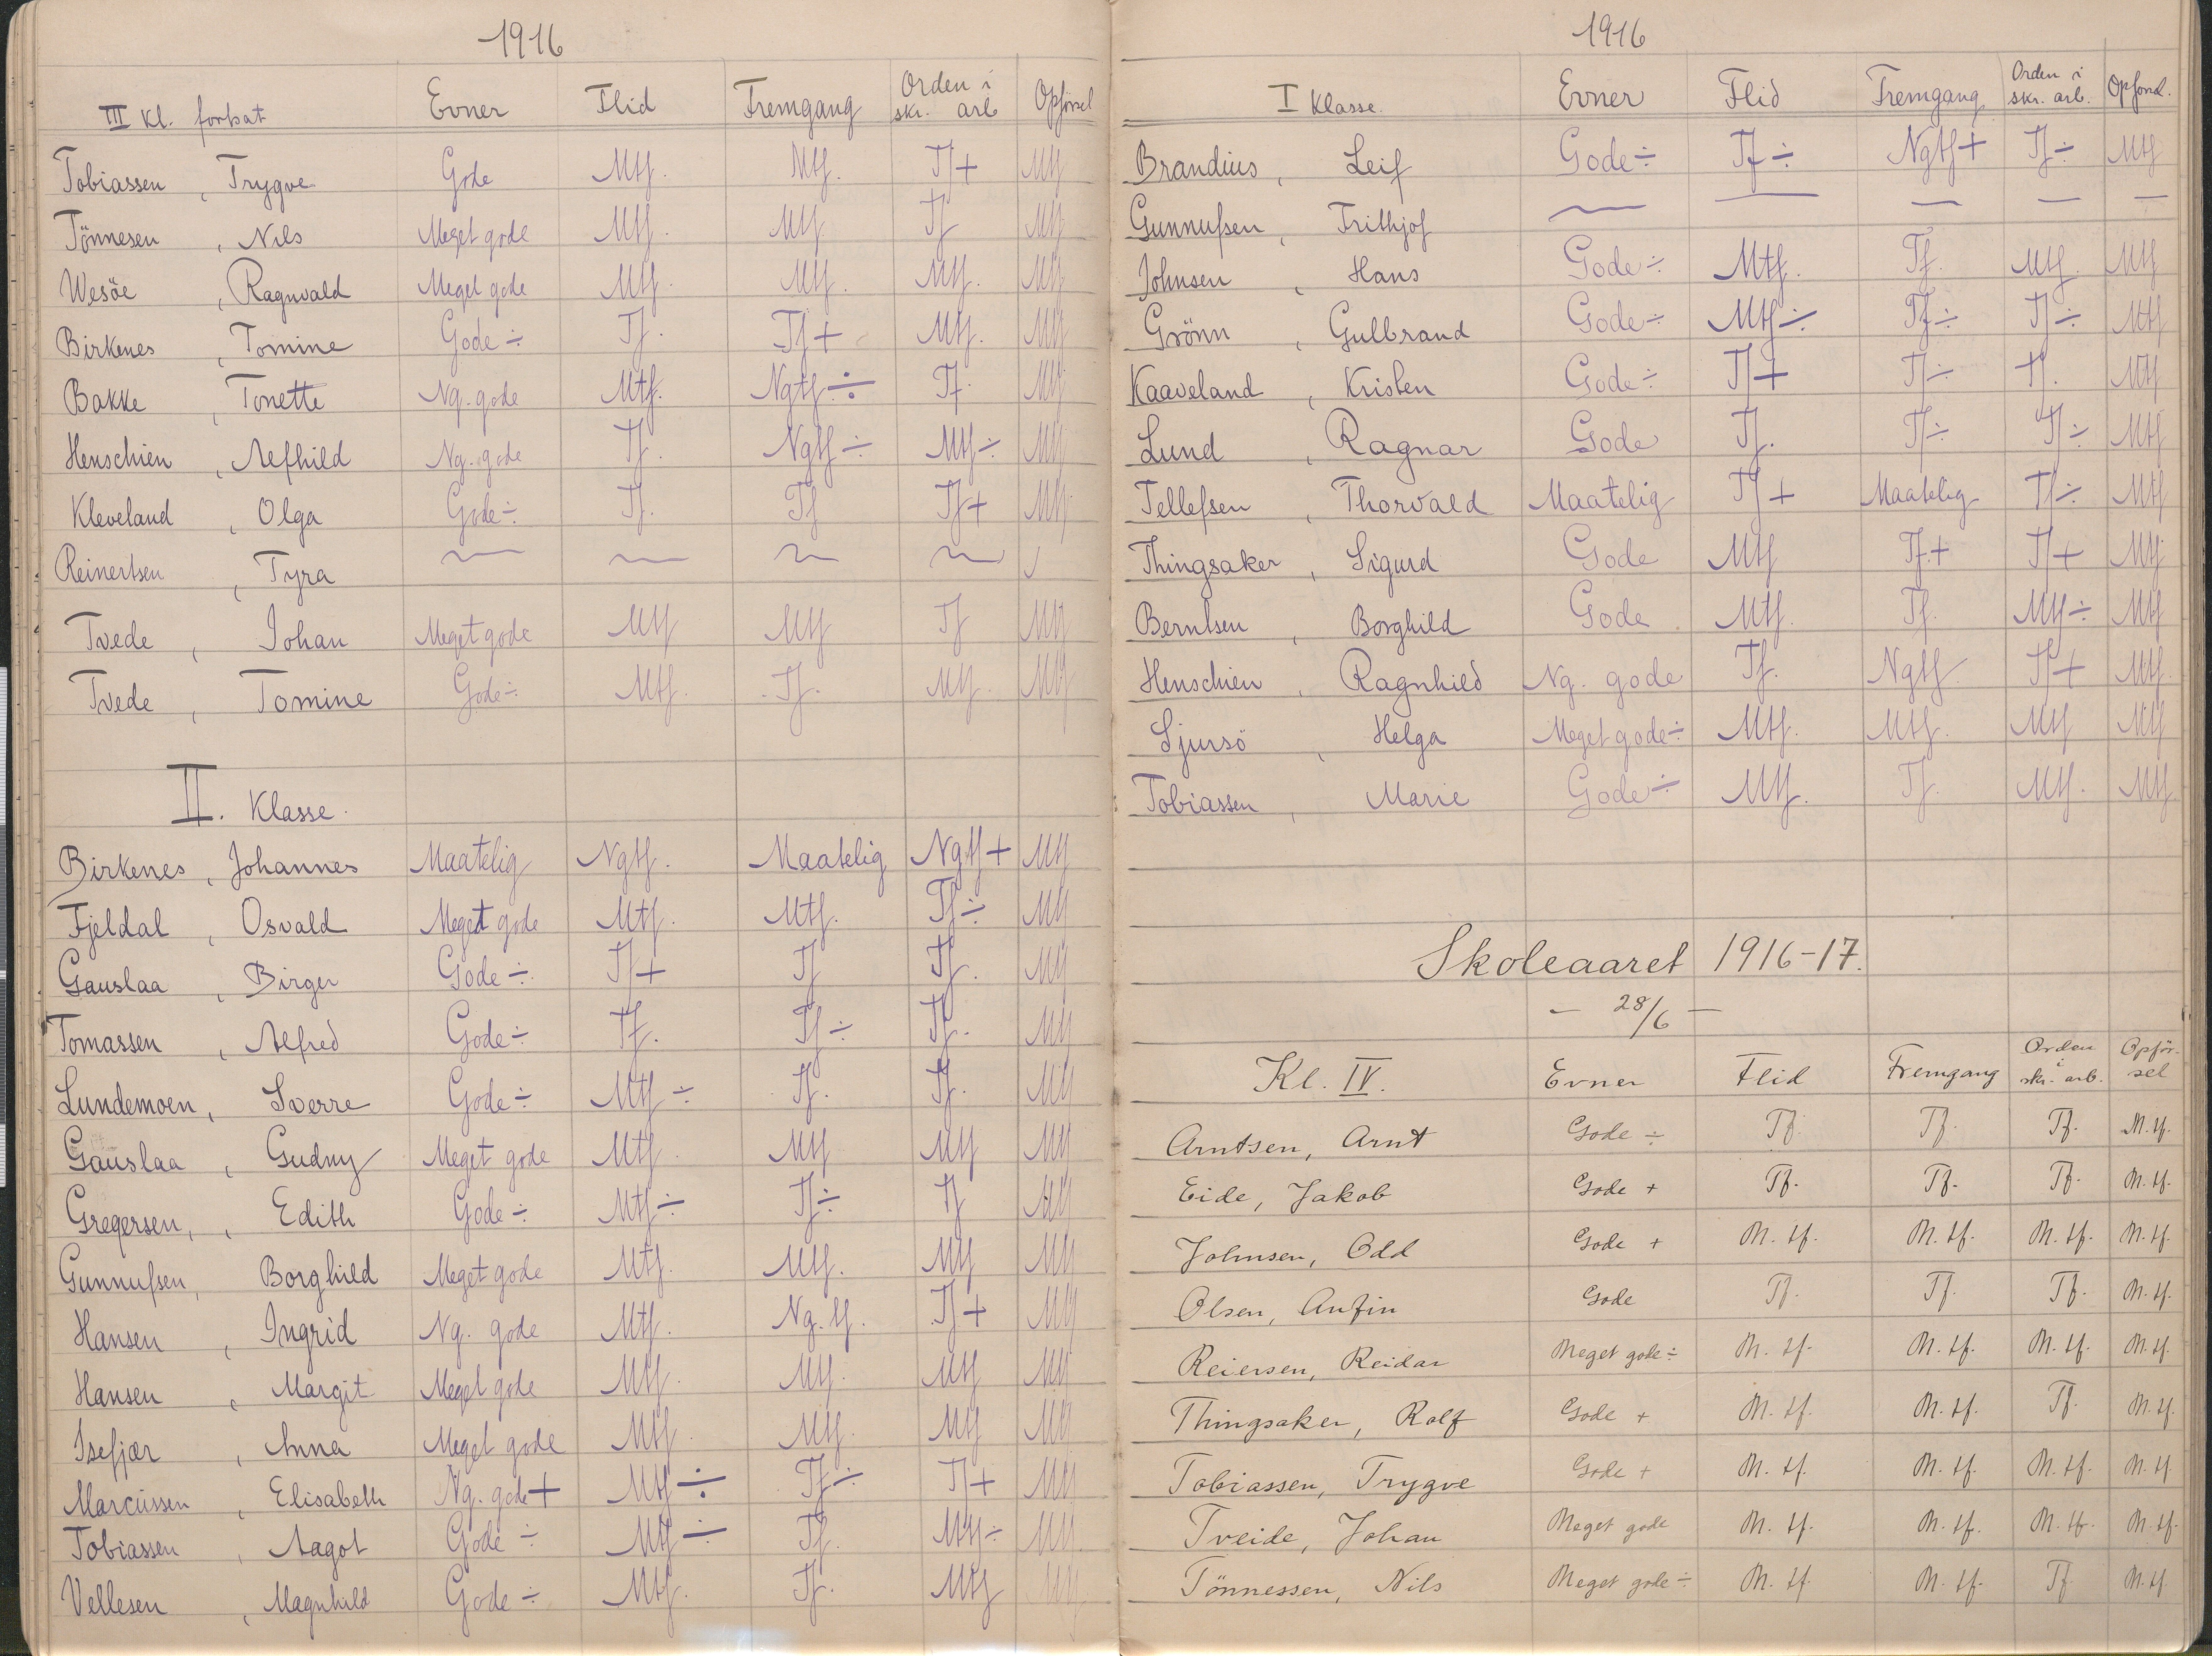 1916
III Kl. fortsat Evner Flid Fremgang Orden i skr. arb Opförsel
Tobiassen , Trygve Gode Mtf. Mtf. Tf+ Mtf
Tönnesen , Nils Meget gode Mtf. Mtf Tf Mtf
Wesöe , Ragnvald Meget gode Mtf. Mtf. Mtf. Mtf
Birkenes , Tomine Gode ÷ Tf. Tf+ Mtf. Mtf
Bakke , Tonette Ng. gode Mtf. Ngtf ÷ Tf. Mtf
Henschien , Alfhild Ng. gode Tf. Ngtf ÷ Mtf ÷ Mtf
Kleveland , Olga Gode ÷ Tf. Tf Tf+ Mtf
Reinertsen , Tyra ~ ~ ~ ~
Tvede , Johan Meget gode Mtf Mtf Tf Mtf
Tvede , Tomine Gode ÷ Mtf. Tf. Mtf. Mtf
II. Klasse.
Birkenes , Johannes Maatelig Ngtf. Maatelig Ngtf+ Mtf
Fjeldal , Osvald Meget gode Mtf. Mtf. Tf ÷ Mtf
Gauslaa , Birger Gode ÷ Tf+ Tf Tf. Mtf
Tomassen , Alfred Gode ÷ Tf. Tf ÷ Tf. Mtf
Lundemoen, Sverre Gode ÷ Mtf ÷ Tf. Tf. Mtf
Gauslaa , Gudny Meget gode Mtf. Mtf Mtf Mtf
Gregersen, , Edith Gode ÷ Mtf ÷ Tf ÷ Tf Mtf
Gunnufsen, Borghild Meget gode Mtf. Mtf. Mtf Mtf
Hansen , Ingrid Ng. gode Mtf. Ng. tf. Tf+ Mtf
Hansen , Margit Meget gode Mtf. Mtf. Mtf Mtf
Isefjær , Anna Meget gode Mtf. Mtf. Mtf Mtf
Marcussen , Elisabeth Ng. gode + Mtf ÷ Tf ÷ Tf+ Mtf
Tobiassen , Aagot Gode ÷ Mtf ÷ Tf. Mtf ÷ Mtf
Vellesen , Magnhild Gode ÷ Mtf. Tf. Mtf Mtf
1916
I Klasse. Evner Flid Fremgang Orden i skr. arb. Opförsel.
Brandius , Leif Gode ÷ Tf ÷ Ngtf+ Tf ÷ Mtf
Gunnufsen , Frithjof ~ — — — —
Johnsen , Hans Gode ÷ Mtf. Tf. Mtf. Mtf
Grönn , Gulbrand Gode ÷ Mtf ÷ Tf ÷ Tf ÷ Mtf
Kaaveland , Kristen Gode ÷ Tf+ Tf ÷ Tf. Mtf
Lund , Ragnar Gode Tf. Tf ÷ Tf ÷ Mtf
Tellefsen , Thorvald Maatelig Tf + Maatelig Tf ÷ Mtf
Thingsaker , Sigurd Gode Mtf Tf+ Tf+ Mtf
Berntsen , Borghild Gode Mtf. Tf. Mtf ÷ Mtf
Henschien , Ragnhild Ng. gode Tf. Ngtf Tf+ Mtf.
Sjursö , Helga Meget gode ÷ Mtf. Mtf. Mtf Mtf
Tobiassen , Marie Gode ÷ Mtf. Tf. Mtf. Mtf
Skoleaaret 1916-17.
— 28/6 —
Kl. IV. Evner Flid Fremgang Orden i skr. arb. Opför- sel
Arntsen, Arnt Gode ÷ Tf. Tf. Tf. M.tf.
Eide, Jakob Gode + Tf. Tf. Tf. M.tf.
Johnsen, Odd Gode + M. tf. M. tf. M. tf. M. tf.
Olsen, Anfin Gode Tf. Tf. Tf. M. tf.
Reiersen, Reidar Meget gode ÷ M. tf. M. tf. M. tf. M. tf.
Thingsaker, Rolf Gode + M. tf. M. tf. Tf. M. tf.
Tobiassen, Trygve Gode + M. tf. M. tf. M. tf. M. tf.
Tveide, Johan Meget gode M. tf. M. tf. M. tf. M. tf.
Tönnessen, Nils Meget gode ÷ M. tf. M. tf. Tf M. tf.